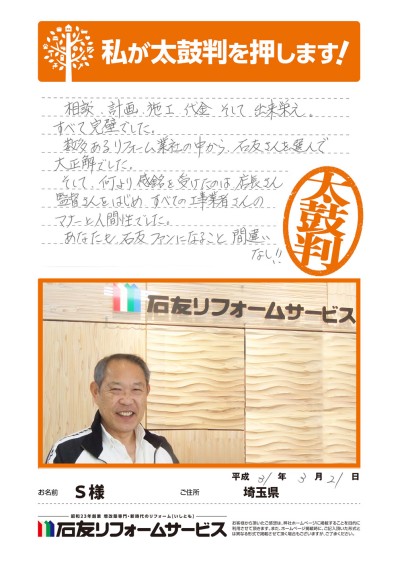 私が太鼓判を押します!
相談、計画、施工、代金、そして出来栄え。
すべて完璧でした。
数多あるリフォーム業社の中から、石友さんを選んで
大正解でした。
そして、何より感銘を受けたのは、店長さん
監督さんをはじめ、すべての工事業者さんの
マナーと人間性でした。
あなたも、石友ファンになること、間違い
なし!!
太鼓判
石友リフォームサービス
平成 31 年 3 月 21 日
お名前 S様 ご住所 埼玉県
昭和33年創業 増改築専門・新時代のリフォーム[いしとも]
石友リフォームサービス
お客様から頂いたご感想は、弊社ホームページに掲載することを目的に
利用させて頂きます。また、ホームページ掲載時に、ご記入頂いた形式と
は異なる形式で掲載させて頂く場合もございますが、ご了承ください。